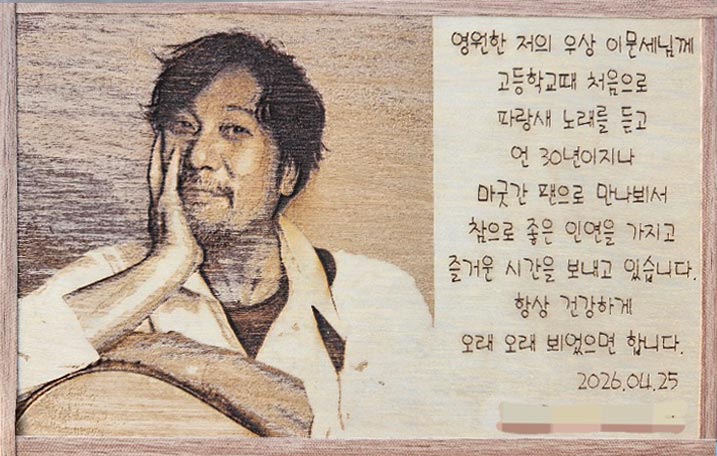 영원한 저의 우상 이문세님께
고등학교때 처음으로
파랑새 노래를 듣고
언 30년이지나
마굿간 팬으로 만나뵈서
참으로 좋은 인연을 가지고
즐거운 시간을 보내고 있습니다.
항상 건강하게
오래 오래 뵈었으면 합니다.
2026.04.25